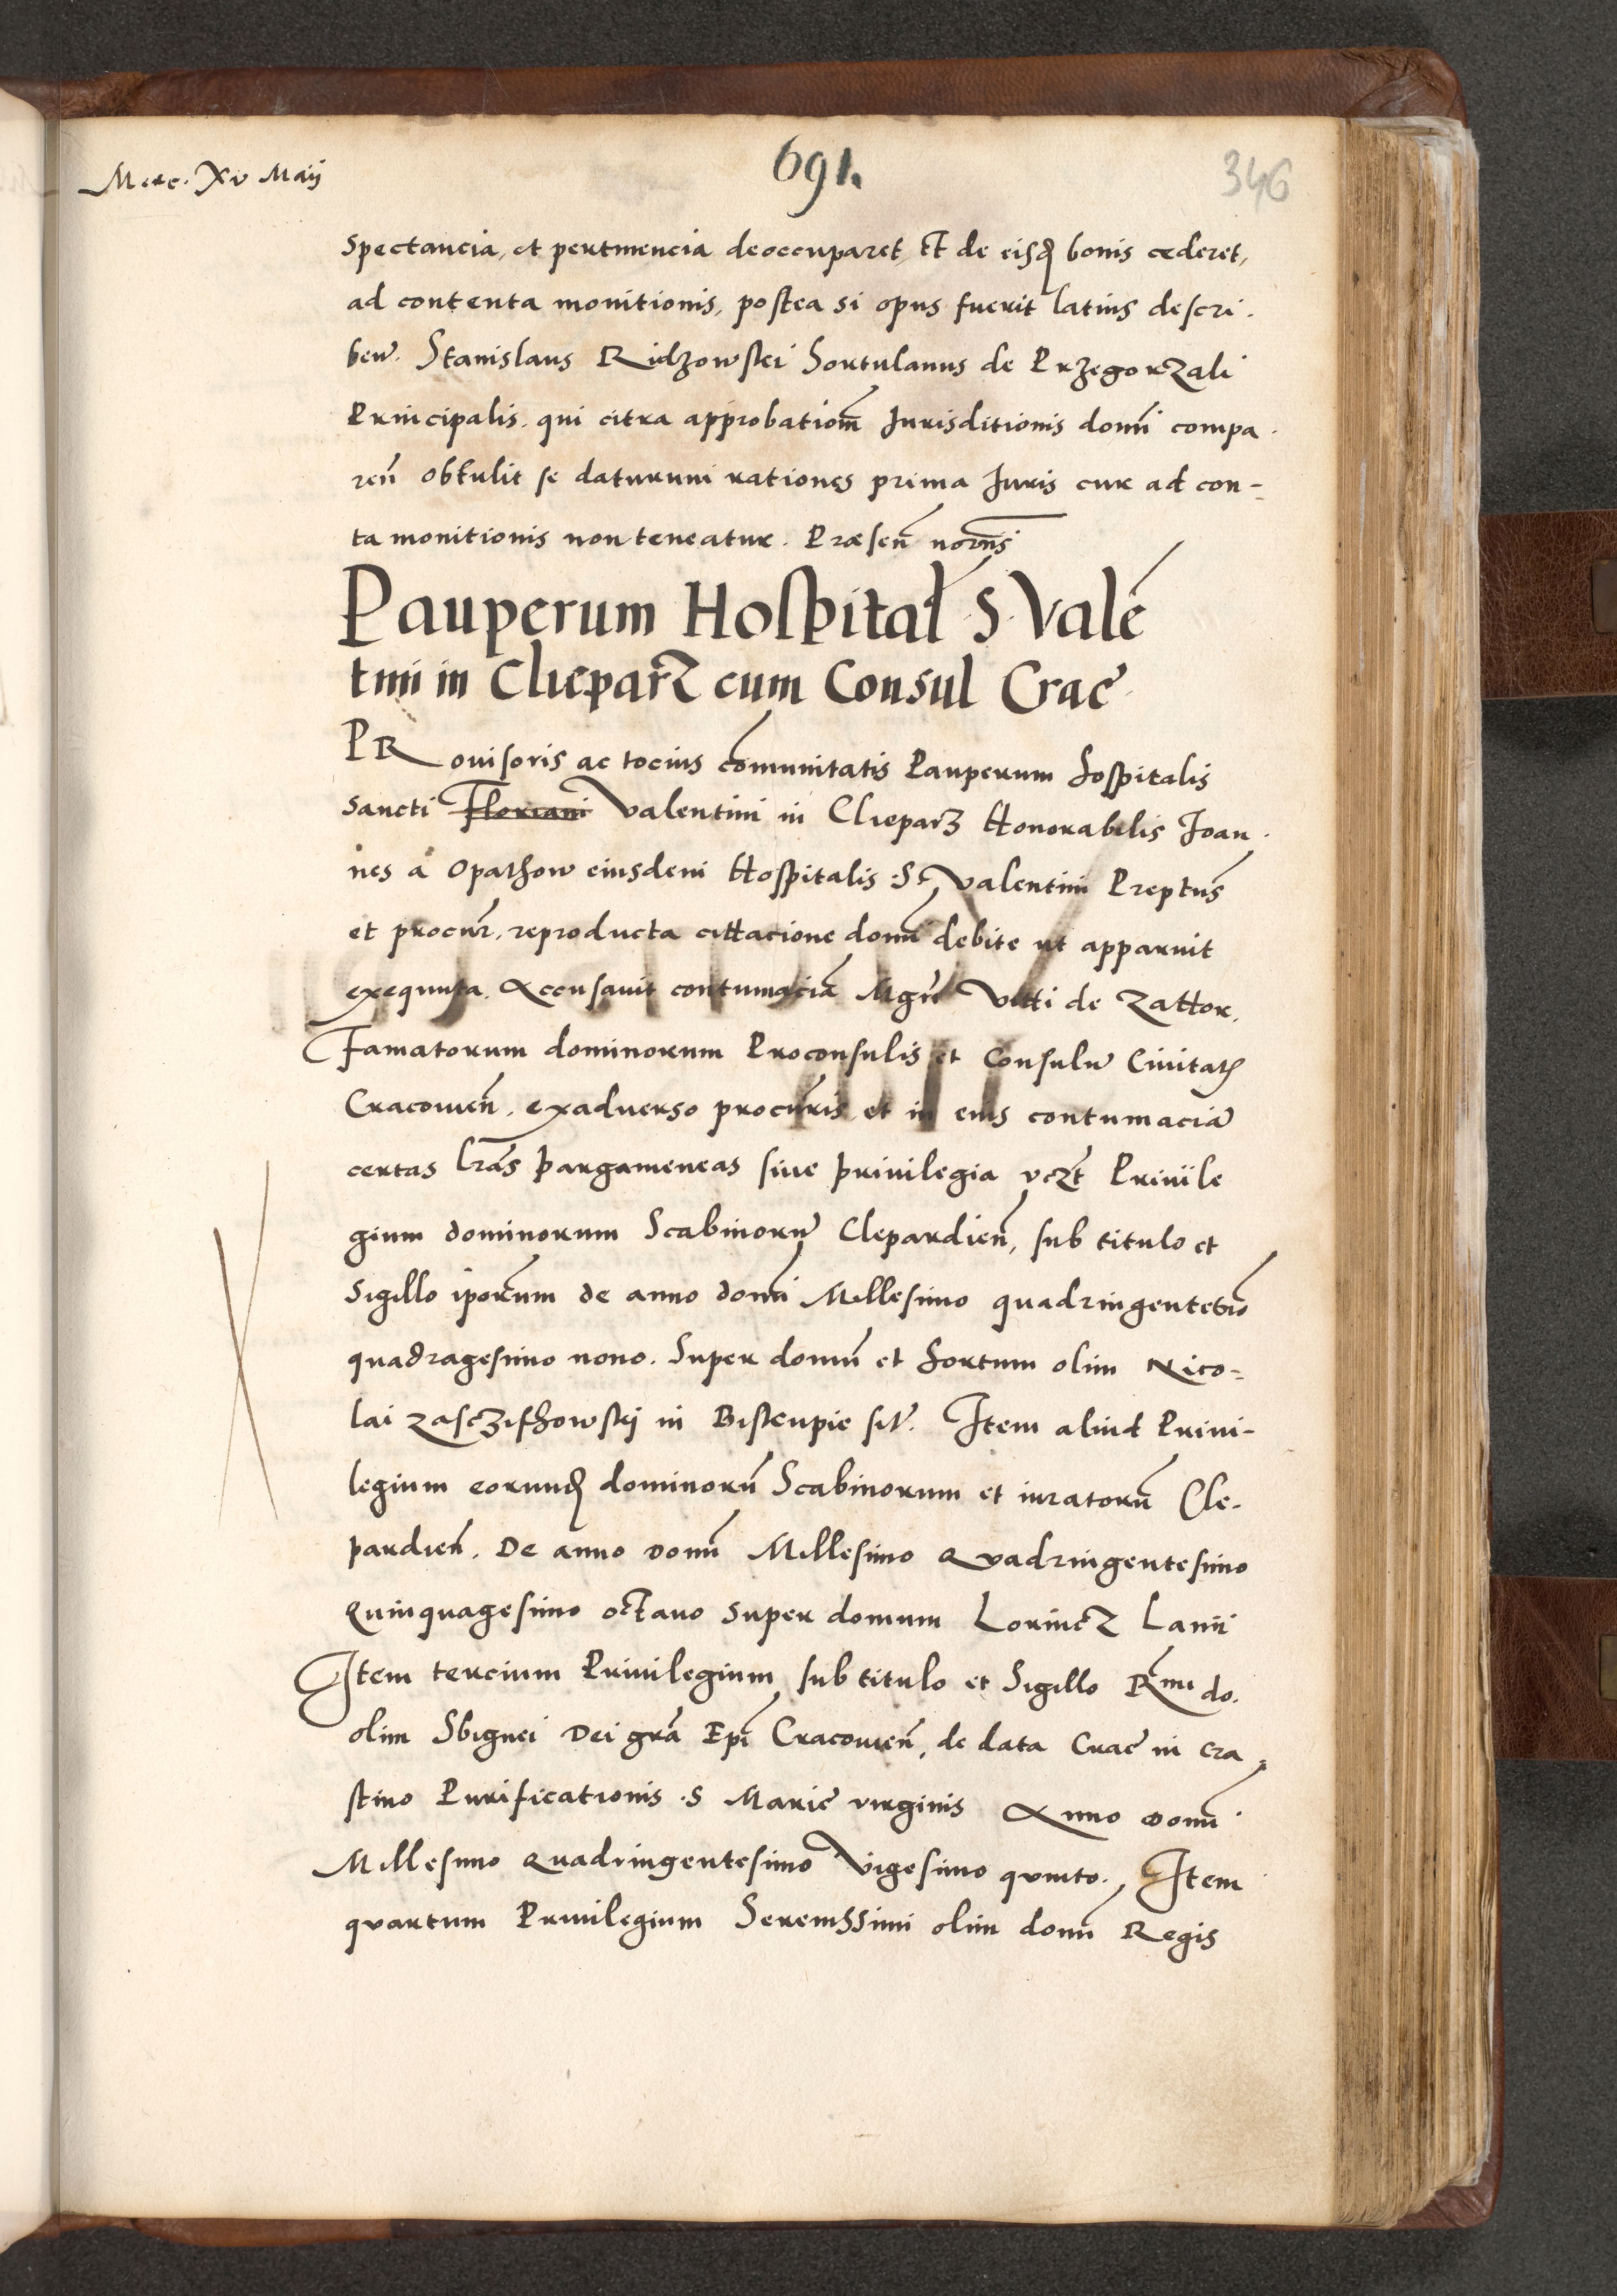 Merc. Xv Maij
691.
346
spectancia, et pertinencia deoccuparet, Et de eisdem bonis cederet,
ad contenta monitionis, postea si opus fuerit latius descri.
ben. Stanislaus Ridzowski Hortulanus de Przegorzali
Principalis. qui citra approbationem Jurisditionis domini compa.
ren obtulit se daturum rationes prima Juris cur ad con-
ta monitionis non teneatur. Præsen
Pauperum Hospital S. Valē
tini in Clieparz cum Consul Crac.
PRouisoris ac tocius cōmunitatis Pauperum Hospitalis
sancti Floriani Valentini in Clieparz Honorabilis Joan.
nes à Opathow eiusdem Hospitalis .S. Valentini Preptus
et procur. reproducta cittacione domī debite ut apparuit
exequuta. Accusauit contumaciā Mgri Vitti de Zattor.
Famatorum dominorum Proconsulis et Consulū Ciuitatis
Cracouien̄. exaduerso procuris et in eius contumaciā
certas lrās pargameneas siue priuilegia vczt Priuile
gium dominorum Scabinorū Clepardien̄, sub titulo et
sigillo ipōrum de anno domī Millesimo quadringentesimo
quadragesimo nono. Super domū et hortum olim Nico-
lai in Biscupie sit. Item aliud Priui-
legium eorundem dominorū Scabinorum et iuratorū Cle-
pardien̄. De anno domī Millesimo Quadringentesimo
Quinquagesimo octauo super domum Lorincz Lanii
Item tercium Priuilegium sub titulo et Sigillo Rmi do.
olim Sbignei Dei grā Epī Cracouien̄, de data Crac in cra-
stino Purificationis .S Marie virginis Anno domī
Millesimo Quadringentesimo Vigesimo quinto. Item
quartum Priuilegium Serenissimi olim domī Regis